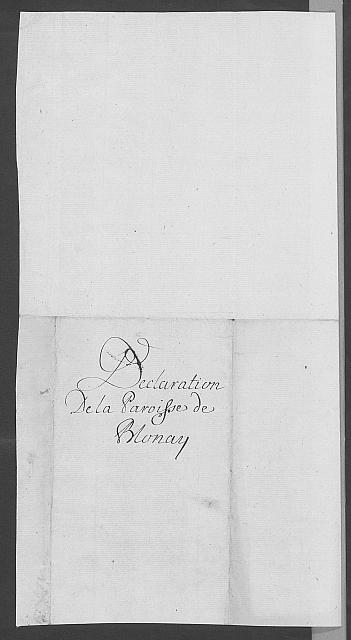 Declaration
De la Paroisse de
Blonay